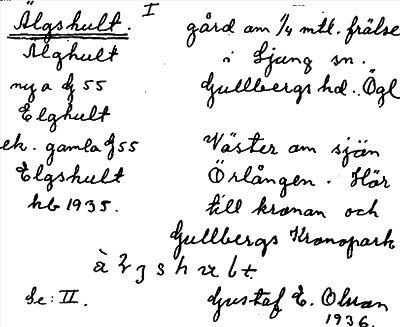 Älgshult. I gård om 1/4 mtl. frälse
Älghult i Ljung sn.
nya G 55 Gullbergs hd. Ögl
Elghult
ek. gamla G 55 Väster om sjön
Elgshult Örlången. Hör
hb 1935. till kronan och
Gullbergs Kronopark
Se: II. Gustaf E. Olson
1936.